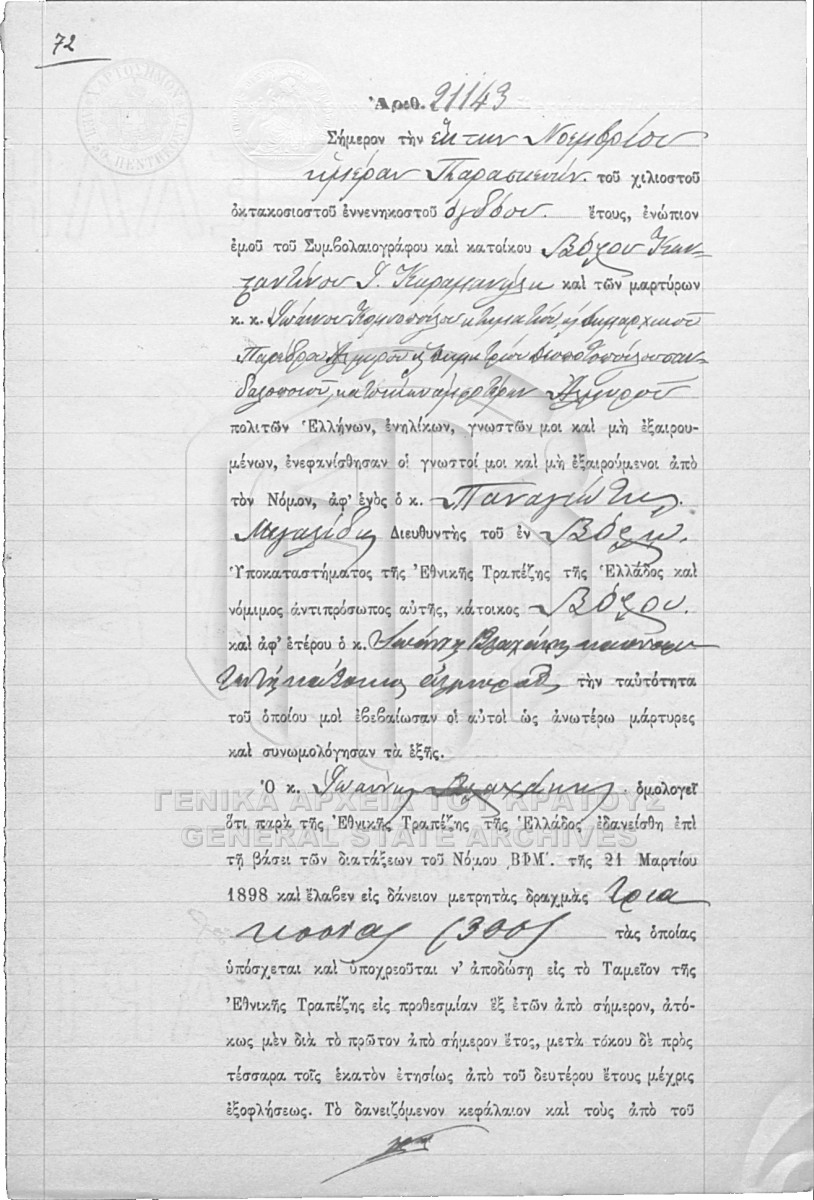 72
Ἀριθ. 21143
Σήμερον τὴν ἕκτην Νοεμβρίου
ἡμέραν Παρασκευὴν τοῦ χιλιοστοῦ
ὀκτακοσιοστοῦ ἐννενηκοστοῦ ὀγδόου ἔτους, ἐνώπιον
ἐμοῦ τοῦ Συμβολαιογράφου καὶ κατοίκου Βόλου Κων-
σταντίνου Καραμανώλη καὶ τῶν μαρτύρων
κ. κ. Ἰωάννου κτηματίου, Δημαρχικοῦ
Παρέδρου Ἁλμυροῦ Δημητρίου
κατοίκων ἀμφοτέρων Ἁλμυροῦ
πολιτῶν Ἑλλήνων, ἐνηλίκων, γνωστῶν μοι καὶ μὴ ἐξαιρου-
μένων, ἐνεφανίσθησαν οἱ γνωστοί μοι καὶ μὴ ἐξαιρούμενοι ἀπὸ
τὸν Νόμον, ἀφ' ἑνὸς ὁ κ. Παναγιώτης
Διευθυντὴς τοῦ ἐν Βόλῳ
Ὑποκαταστήματος τῆς Ἐθνικῆς Τραπέζης τῆς Ἑλλάδος καὶ
νόμιμος ἀντιπρόσωπος αὐτῆς, κάτοικος Βόλου.
καὶ ἀφ' ἑτέρου ὁ κ. Ἰωάννης Βλαχάκης
κάτοικος Ἁλμυροῦ τὴν ταὐτότητα
τοῦ ὁποίου μοὶ ἐβεβαίωσαν οἱ αὐτοὶ ὡς ἀνωτέρω μάρτυρες
καὶ συνωμολόγησαν τὰ ἑξῆς.
Ὁ κ. Ἰωάννης Βλαχάκης ὁμολογεῖ
ΓΕΝΙΚΑ ΑΡΧΕΙΑ ΤΟΥ ΚΡΑΤΟΥΣ
ὅτι παρὰ τῆς Ἐθνικῆς Τραπέζης τῆς Ἑλλάδος ἐδανείσθη ἐπὶ
GENERAL STATE ARCHIVES
τῇ βάσει τῶν διατάξεων τοῦ Νόμου ͵ΒΦΜʹ. τῆς 21 Μαρτίου
1898 καὶ ἔλαβεν εἰς δάνειον μετρητὰς δραχμὰς τρια
κοσίας (300) τὰς ὁποίας
ὑπόσχεται καὶ ὑποχρεοῦται ν' ἀποδώσῃ εἰς τὸ Ταμεῖον τῆς
Ἐθνικῆς Τραπέζης εἰς προθεσμίαν ἓξ ἐτῶν ἀπὸ σήμερον, ἀτό-
κως μὲν διὰ τὸ πρῶτον ἀπὸ σήμερον ἔτος, μετὰ τόκου δὲ πρὸς
τέσσαρα τοῖς ἑκατὸν ἐτησίως ἀπὸ τοῦ δευτέρου ἔτους μέχρις
ἐξοφλήσεως. Τὸ δανειζόμενον κεφάλαιον καὶ τοὺς ἀπὸ τοῦ